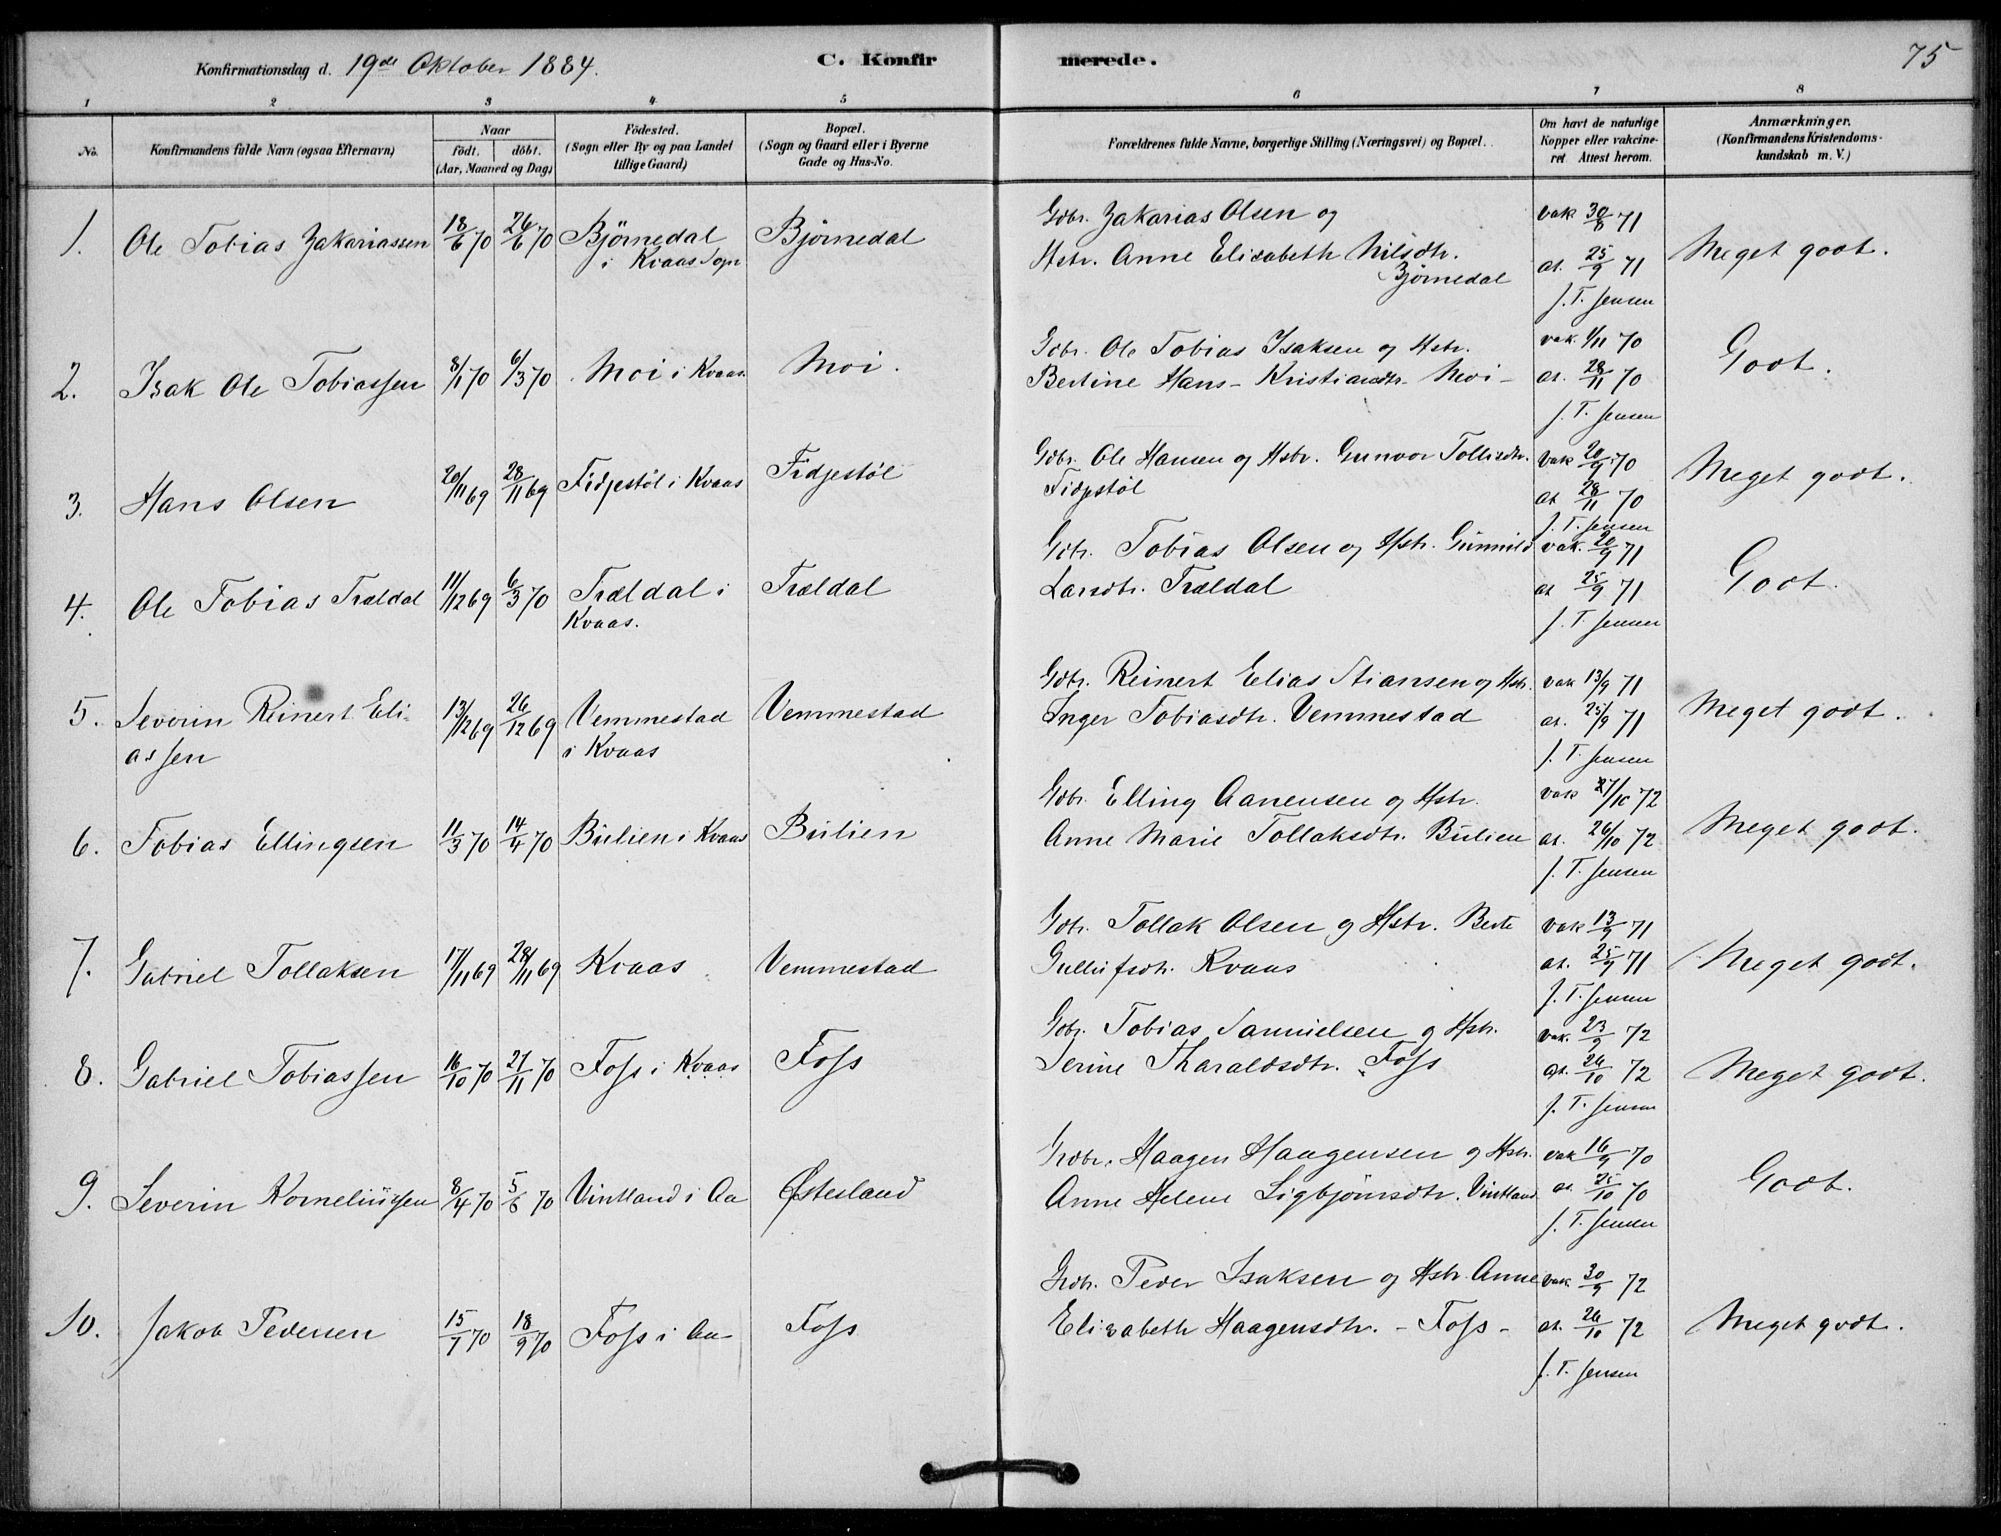 Konfirmationsdag d. 19de Oktober 1884. C. Konfirmerede. 75
1 2 3 4 5 6 7 8
No. Konfirmandens fulde Navn (ogsaa Efternavn) Naar født. døbt. (Aar, Maaned og Dag) Fødested. (Sogn eller By og paa Landet tillige Gaard) Bopæl. (Sogn og Gaard eller i Byerne Gade og Hus-No. Forældrenes fulde Navne, borgerlige Stilling (Næringsvei) og Bopæl. Om havt de naturlige Kopper eller vakcineret Attest herom. Anmærkninger. (Konfirmandens Kristendomskundskab m. V.)
1. Ole Tobias Zakariassen 18/6 70 26/6 70 Bjørnedal i Kvaas Sogn Bjørnedal
Gdbr. Zakarias Olsen og vak 30/8 71
Hstr. Anne Elisabeth Nilsdtr. at. 25/9 71 Meget godt.
Bjørnedal J. T. Jensen
2. Isak Ole Tobiassen 8/1 70 6/3 70 Moi i Kvaas. Moi.
Gdbr. Ole Tobias Isaksen og Hstr. vak. 1/11 70 Godt.
Bertine Hans-Kristiandtr. Moi- at. 28/11 70
J. T. Jensen
3. Hans Olsen 20/11 69 28/11 69 Fidjestøl i Kvaas Fidjestøl
Gdbr. Ole Hansen og Hstr. Gunvor Tollisdtr. vak 20/9 70 Meget godt.
Fidjestøl at 28/11 70
J. T. Jensen
4. Ole Tobias Trældal 11/12 69 6/3 70 Trældal i Kvaas. Trældal
Gdbr. Tobias Olsen og Hstr. Gunnild vak. 20/9 71 Godt.
Larsdtr. Trældal at 25/9 71
J. T. Jensen
5. Severin Reinert Eliassen 13/12 69 26/12 69 Vemmestad i Kvaas Vemmestad
Gdbr. Reinert Elias Stiansen og Hstr. vak 13/9 71
Inger Tobiasdtr. Vemmestad at. 25/9 71 Meget godt.
J. T. Jensen
6. Tobias Ellingsen 11/3 70 14/4 70 Bulien i Kvaas Bulien
Gdbr. Elling Aanensen og Hstr. vak 27/10 72
Anne Marie Tollaksdtr. Bulien at. 26/10 72 Meget godt.
J. T. Jensen
7. Gabriel Tollaksen 17/11 69 28/11 69 Kvaas Vemmestad
Gdbr. Tollak Olsen og Hstr. Berte vak 13/9 71
Gullufsdtr. Kvaas at. 25/9 71 Meget godt.
J. T. Jensen
8. Gabriel Tobiassen 16/10 70 27/11 70 Foss i Kvaas Foss
Gdbr. Tobias Samuelsen og Hstr. vak. 23/9 72
Serine Tharaldsdtr. Foss at. 26/10 72 Meget godt.
J. T. Jensen
9. Severin Korneliussen 8/4 70 5/6 70 Vintland i Aa Østesland
Grdbr. Haagen Haagensen og Hstr. vak 16/9 70 Godt.
Anne Helene Sigbjørnsdtr. Vintland at 25/10 70
J. T. Jensen
10. Jakob Pedersen 15/7 70 18/9 70 Foss i Aa Foss
Grdbr. Peder Isaksen og Hstr. Anne vak 30/9 72
Elisabeth Haagensdtr. - Foss - at. 26/10 72 Meget godt.
J. T. Jensen